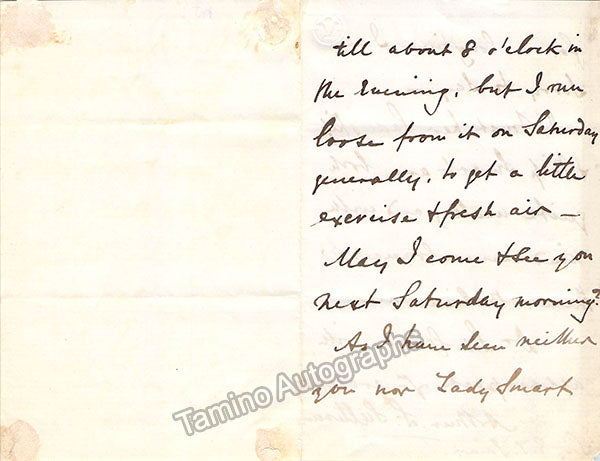 till about 8 o'clock in
the Evening, but I run
loose from it on Saturday
generally, to get a little
exercise & fresh air —
May I come & see you
next Saturday morning?
As I have seen neither
you nor Lady Smart
Tamino Autographs